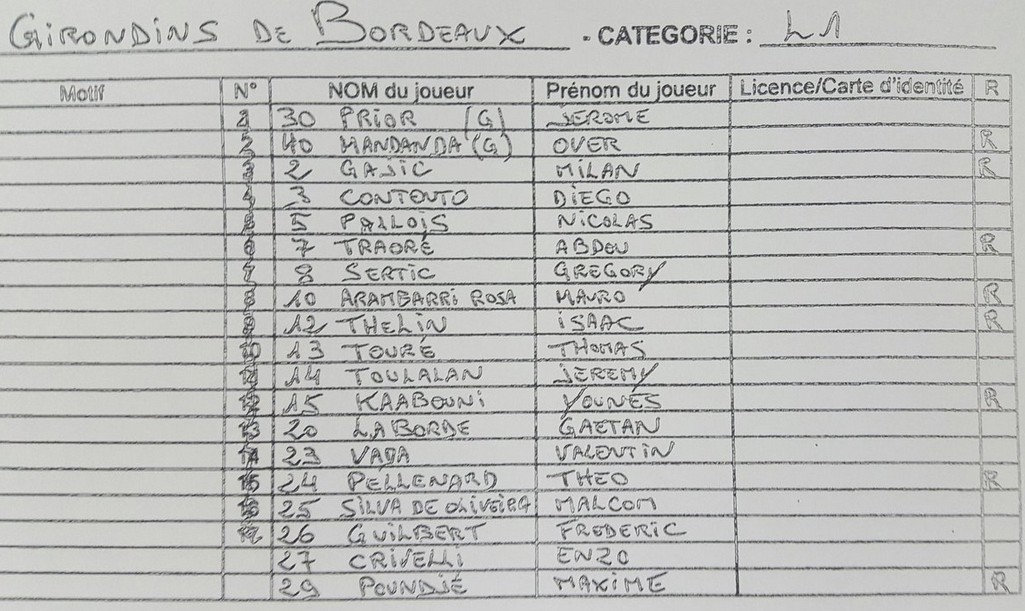 GIRONDINS DE BORDEAUX - CATEGORIE : L1
Motif N° NOM du joueur Prénom du joueur Licence/Carte d'identité R
1 30 PRIOR (G) JEROME
2 40 MANDANDA (G) OVER R
3 2 GAJIC MILAN R
4 3 CONTENTO DIEGO
5 5 PALLOIS NICOLAS
6 7 TRAORÉ ABDOU R
7 8 SERTIC GREGORY
8 10 ARAMBARRI ROSA MAURO R
9 12 THELIN ISAAC R
10 13 TOURÉ THOMAS
11 14 TOULALAN JEREMY
12 15 KAABOUNI YOUNÈS R
13 20 LABORDE GAETAN
14 23 VADA VALENTIN
15 24 PELLENARD THEO R
16 25 SILVA DE OLIVEIRA MALCOM
17 26 GUILBERT FREDERIC
27 CRIVELLI ENZO
29 POUNDJÉ MAXIME R